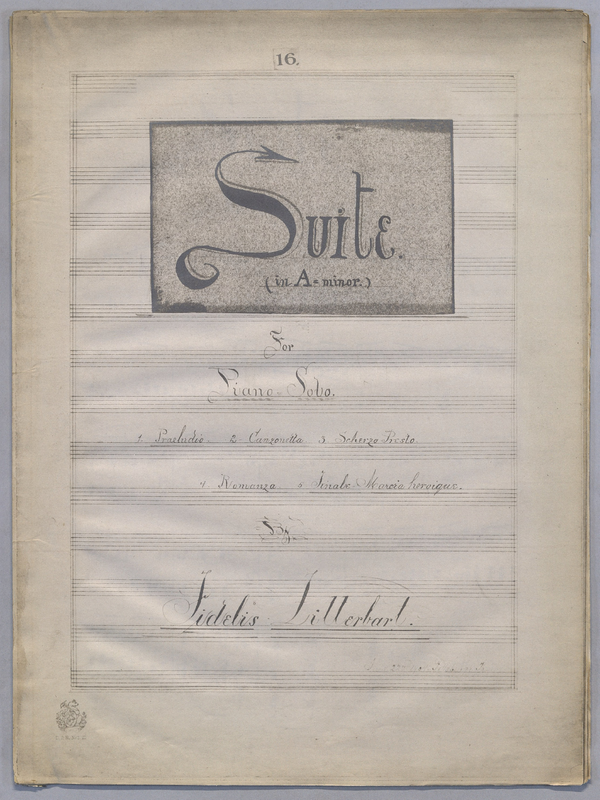 16.
Suite.
(in A=minor.)
For
Piano-Solo.
1 Praeludio. 2 Canzonetta 3 Scherzo-Presto
4 Romanza 5 Finale-Marcia heroique.
By
Fidelis Zitterbart.